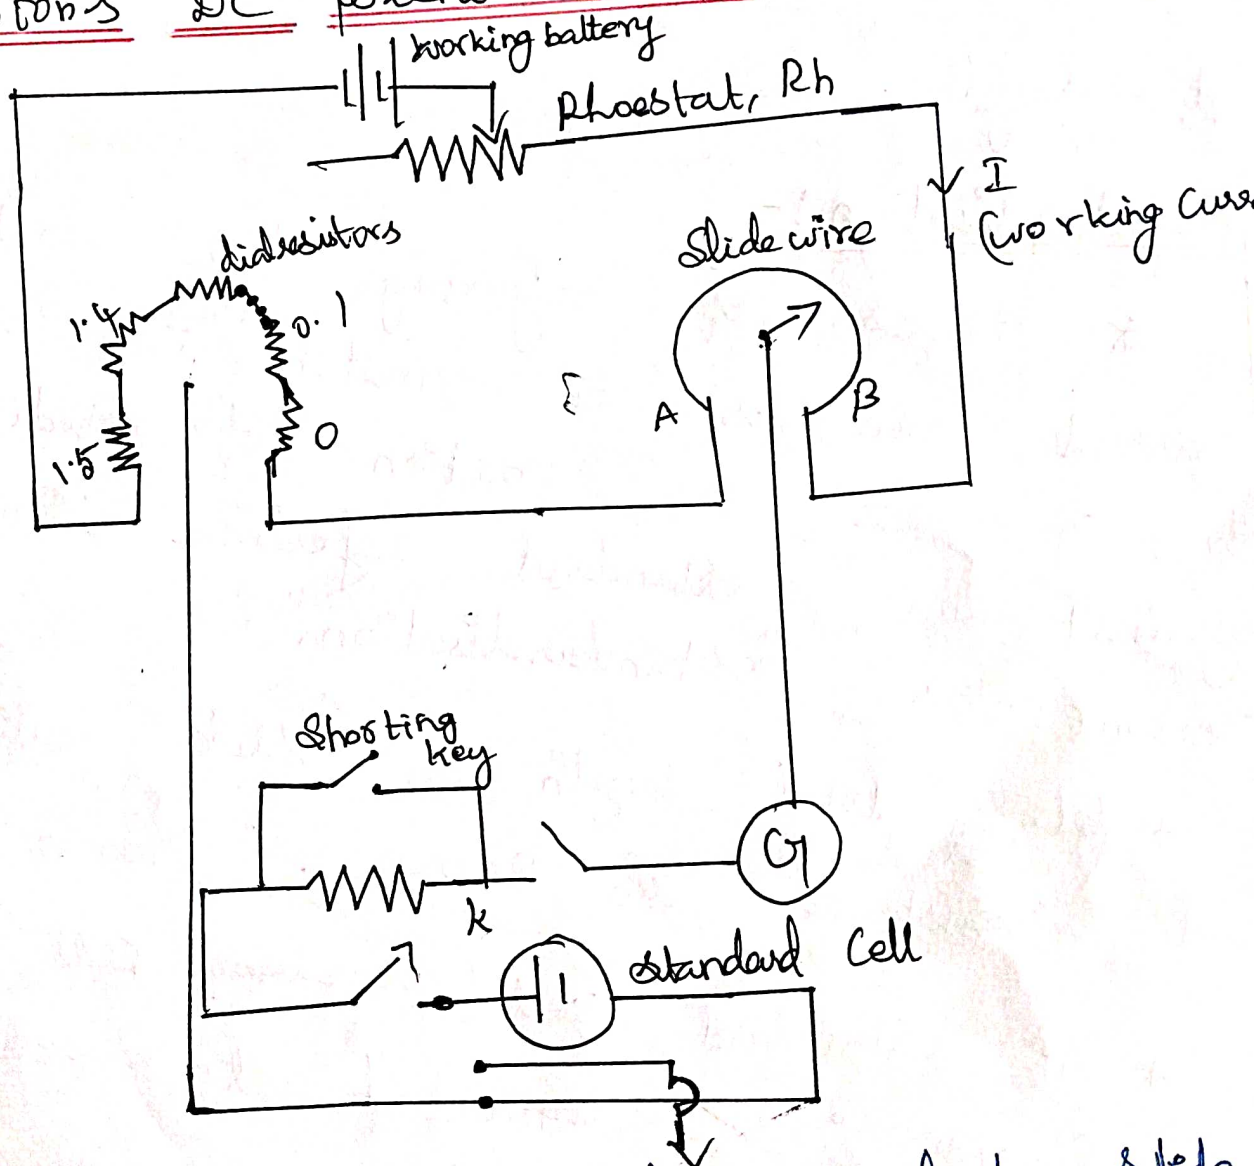 DC
Working battery
Rhoestat, Rh
I
(working
dialresistors
Slide wire
1.4
0.1
A
B
1.5
0
Shorting
key
G
K
Standard Cell